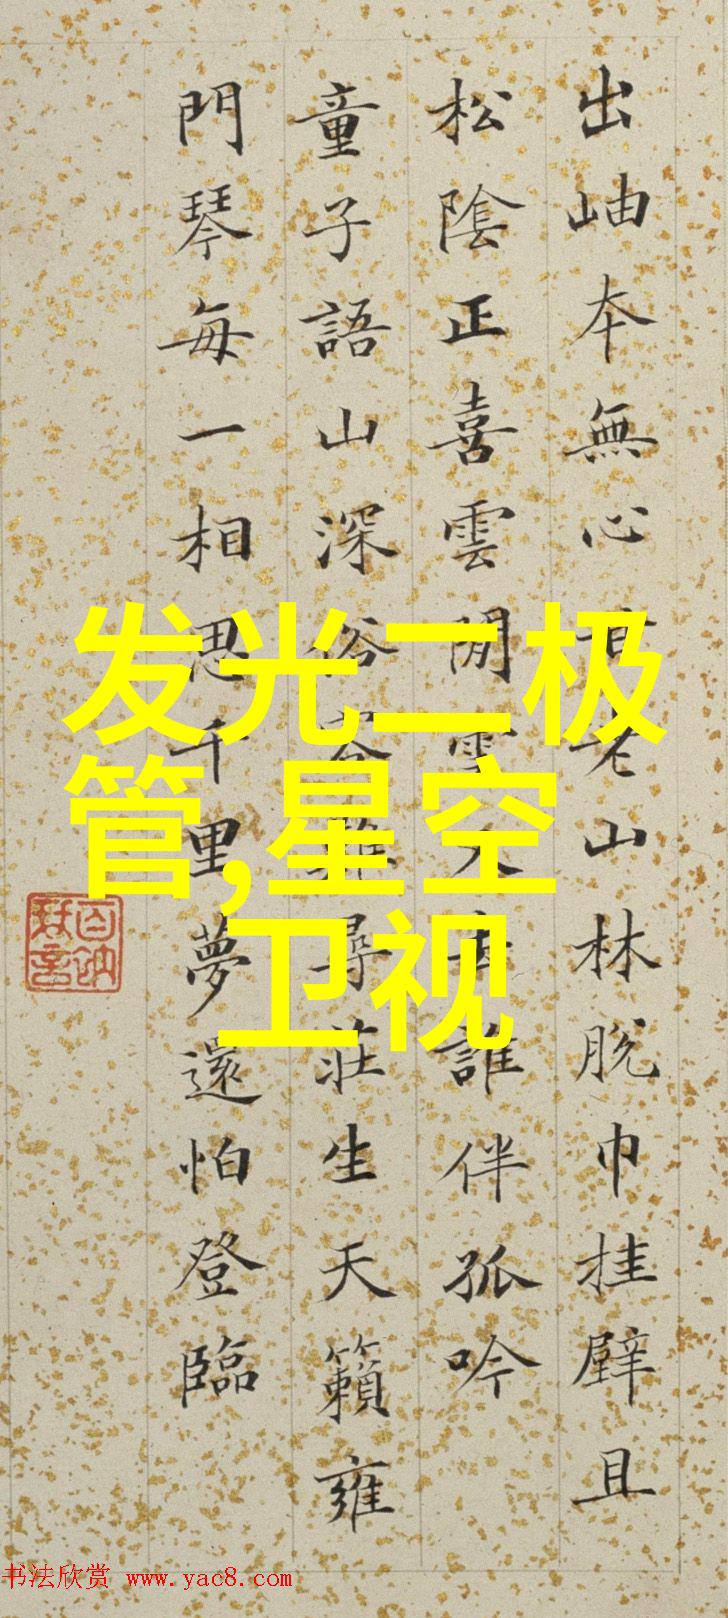 出岫本無心甘老山林脱巾挂壁且
松陰正喜雲閒誰伴孤吟
童子語山深俗難尋莊生天籟雍
門琴每一相思千里夢還怕登臨
发光二极
管,星空
卫视
书法欣赏 www.yac8.com